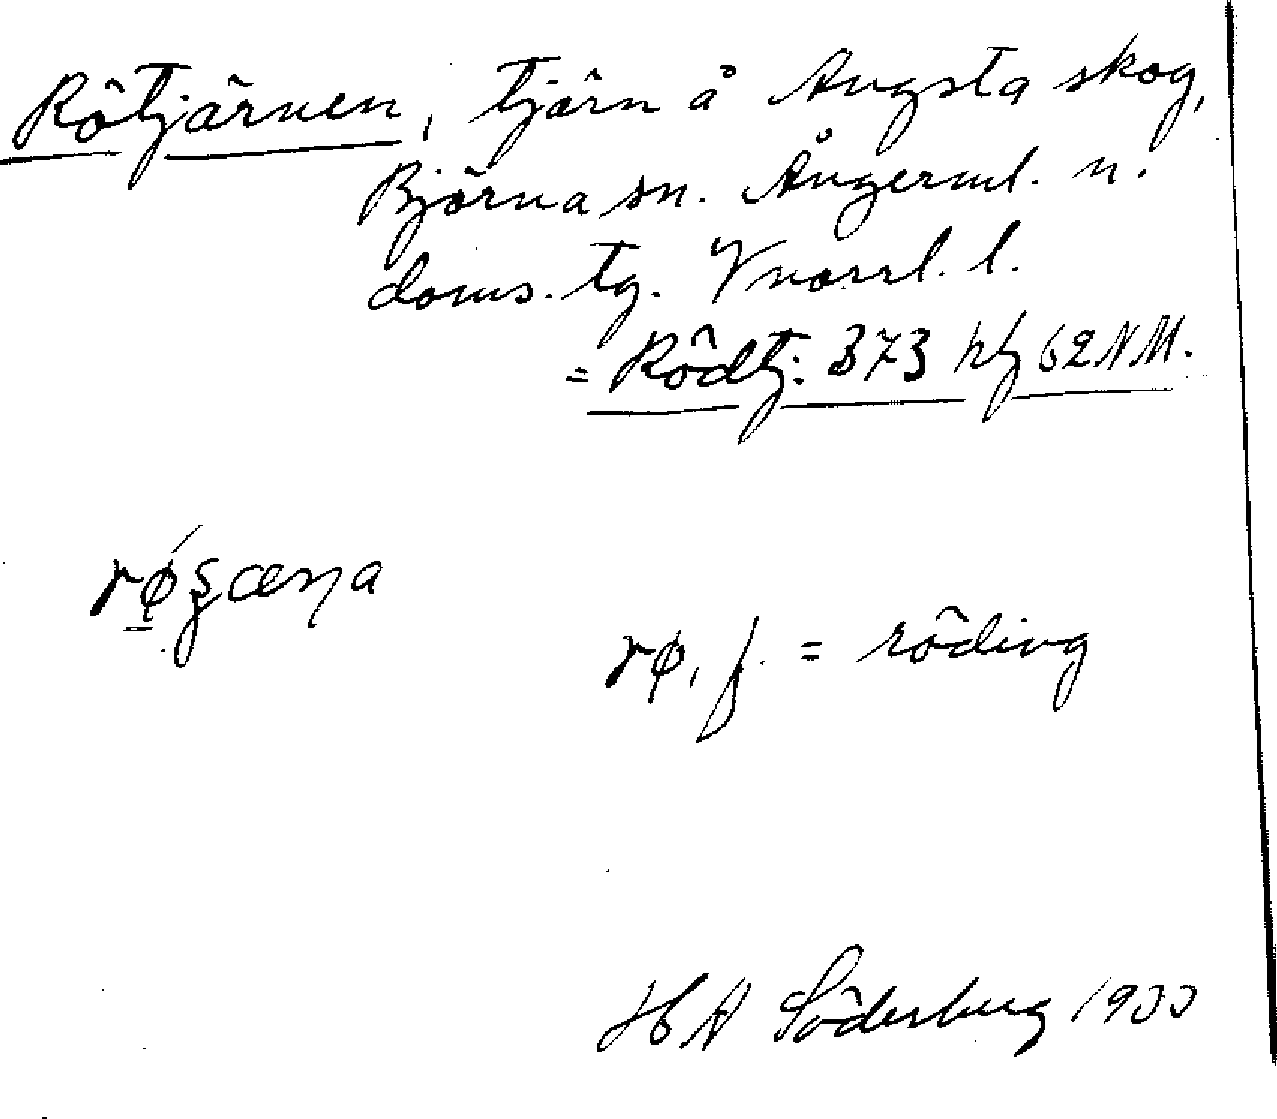 Rötjärnen, tjärn å Augsta skog,
Björna sn. Ångerml. n.
doms. tg. Vnorrl. l.
= Rödtj: 373 hf 62 NM.
rø, f. = röding
H A Söderberg 1933